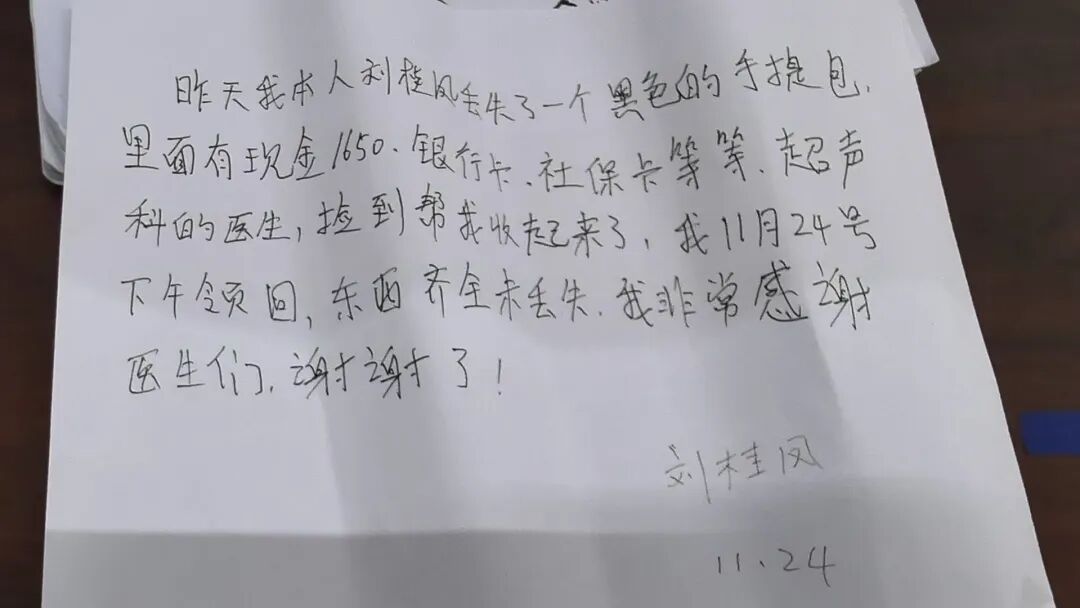 昨天我本人刘桂凤丢失了一个黑色的手提包,
里面有现金1650、银行卡、社保卡等等、超声
科的医生,捡到帮我收起来了,我11月24号
下午领回,东西齐全未丢失.我非常感谢
医生们,谢谢了!
刘桂凤
11.24